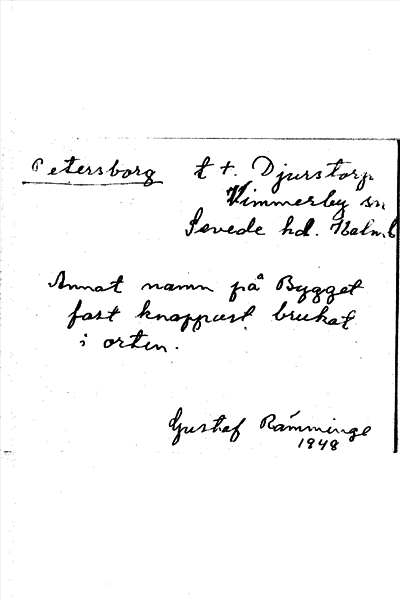 Petersborg t t. Djurstorp
Vimmerby sn
Sevede hd. Kalm.l
Annat namn på Bygget
fast knappast brukat
i orten.
Gustaf Rämminge
1948